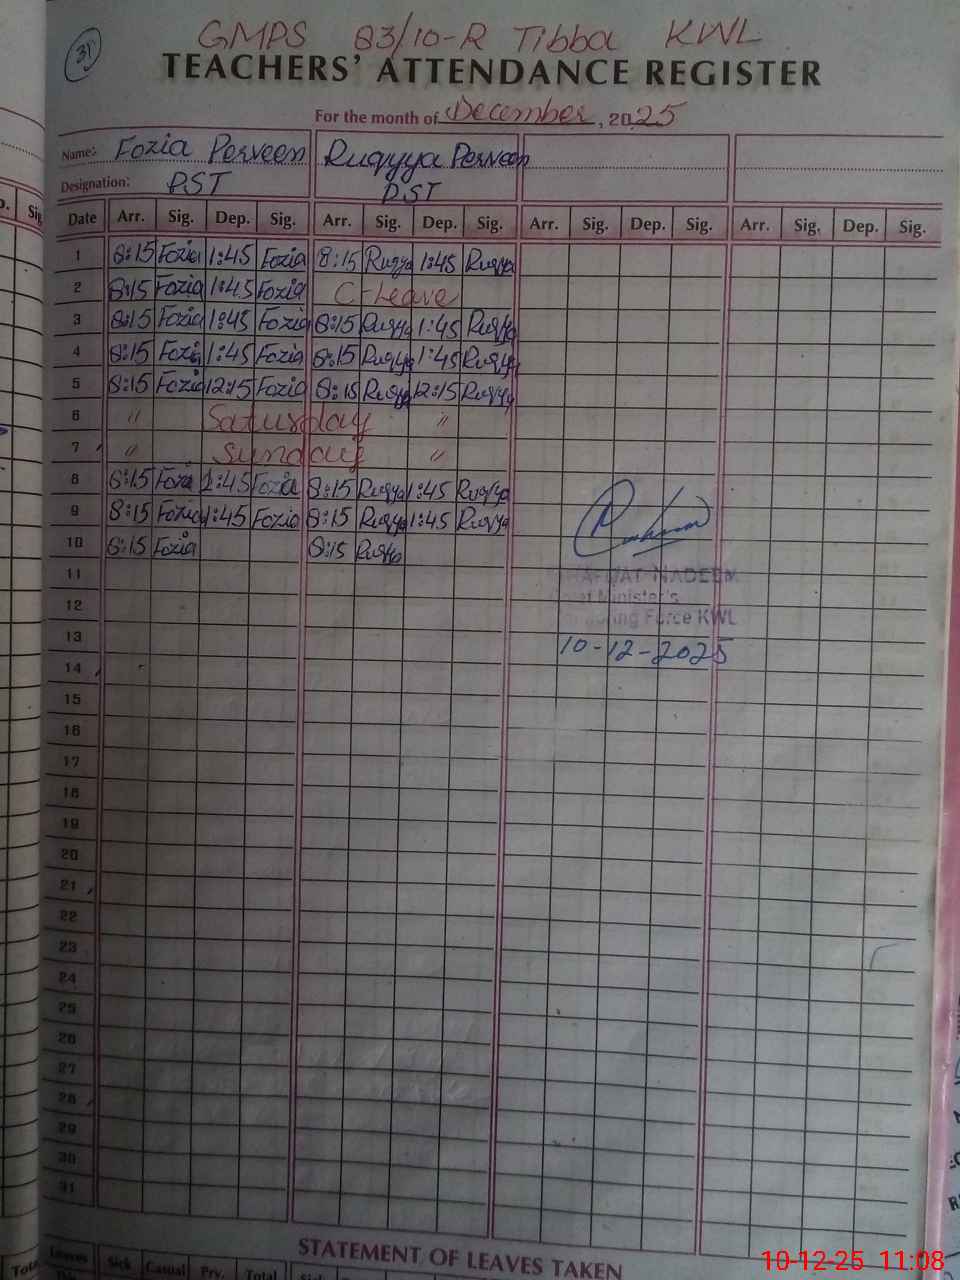 31
GMPS 83/10-R Tibba KWL
TEACHERS' ATTENDANCE REGISTER
For the month of December, 2025
Name: Fozia Perveen Ruqyya Perveen
Designation: PST PST
Date Arr. Sig. Dep. Sig. Arr. Sig. Dep. Sig. Arr. Sig. Dep. Sig. Arr. Sig. Dep. Sig.
1 8:15 Fozia 1:45 Fozia 8:15 Ruqya 1:45 Ruqya
2 8:15 Fozia 1:45 Fozia C-Leave
3 8:15 Fozia 1:45 Fozia 8:15 Ruqya 1:45 Ruqya
4 8:15 Fozia 1:45 Fozia 8:15 Ruqya 1:45 Ruqya
5 8:15 Fozia 12:15 Fozia 8:15 Ruqya 12:15 Ruqya
6 " Saturday "
7 " Sunday "
8 8:15 Fozia 1:45 Fozia 8:15 Ruqya 1:45 Ruqya
9 8:15 Fozia 1:45 Fozia 8:15 Ruqya 1:45 Ruqya
10 8:15 Fozia 8:15 Ruqya
11
NADEEM
12
Minister's
13
Force KWL
10-12-2025
14
15
16
17
18
19
20
21
22
23
24
25
26
27
28
29
30
31
STATEMENT OF LEAVES TAKEN
Leaves Sick Casual Prv. Total Sick
10-12-25 11:08